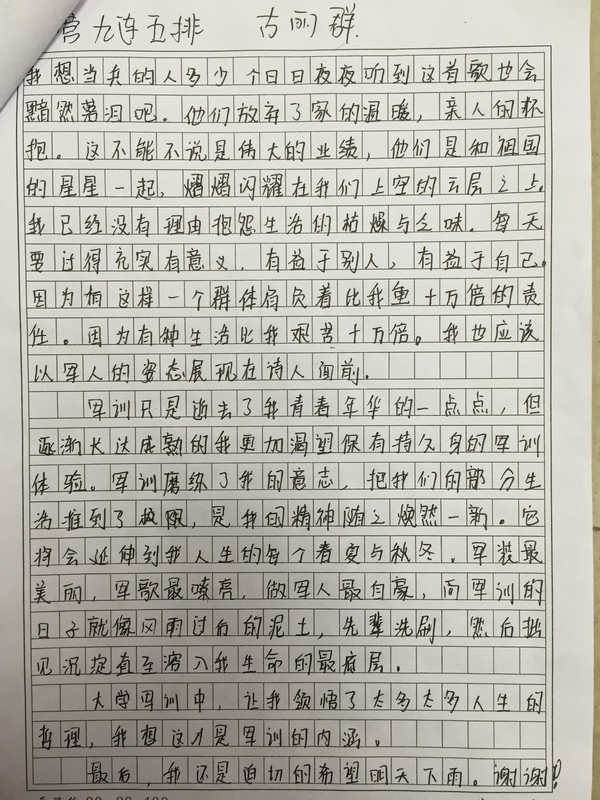 营九连五排 古丽群
我想当兵的人多少个日日夜夜听到这首歌也会
黯然落泪吧。他们放弃了家的温暖，亲人的怀
抱。这不能不说是伟大的业绩，他们是和祖国
的星星一起，熠熠闪耀在我们上空的云层之上。
我已经没有理由抱怨生活的枯燥与乏味。每天
要过得充实有意义，有益于别人，有益于自己。
因为有这样一个群体肩负着比我重十万倍的责
任。因为有种生活比我艰苦十万倍。我也应该
以军人的姿态展现在诗人面前。
军训只是逝去了我青春年华的一点点，但
逐渐长大成熟的我更加渴望保有持久身的军训
体验。军训磨练了我的意志，把我们的部分生
活推到了极限，是我的精神随之焕然一新。它
将会延伸到我人生的每个春夏与秋冬。军装最
美丽，军歌最嘹亮，做军人最自豪，而军训的
日子就像风雨过后的泥土，先辈洗刷，然后
见沉淀直至溶入我生命的最底层。
大学军训中，让我领悟了太多太多人生的
哲理，我想这才是军训的内涵。
最后，我还是迫切的希望明天下雨。谢谢！